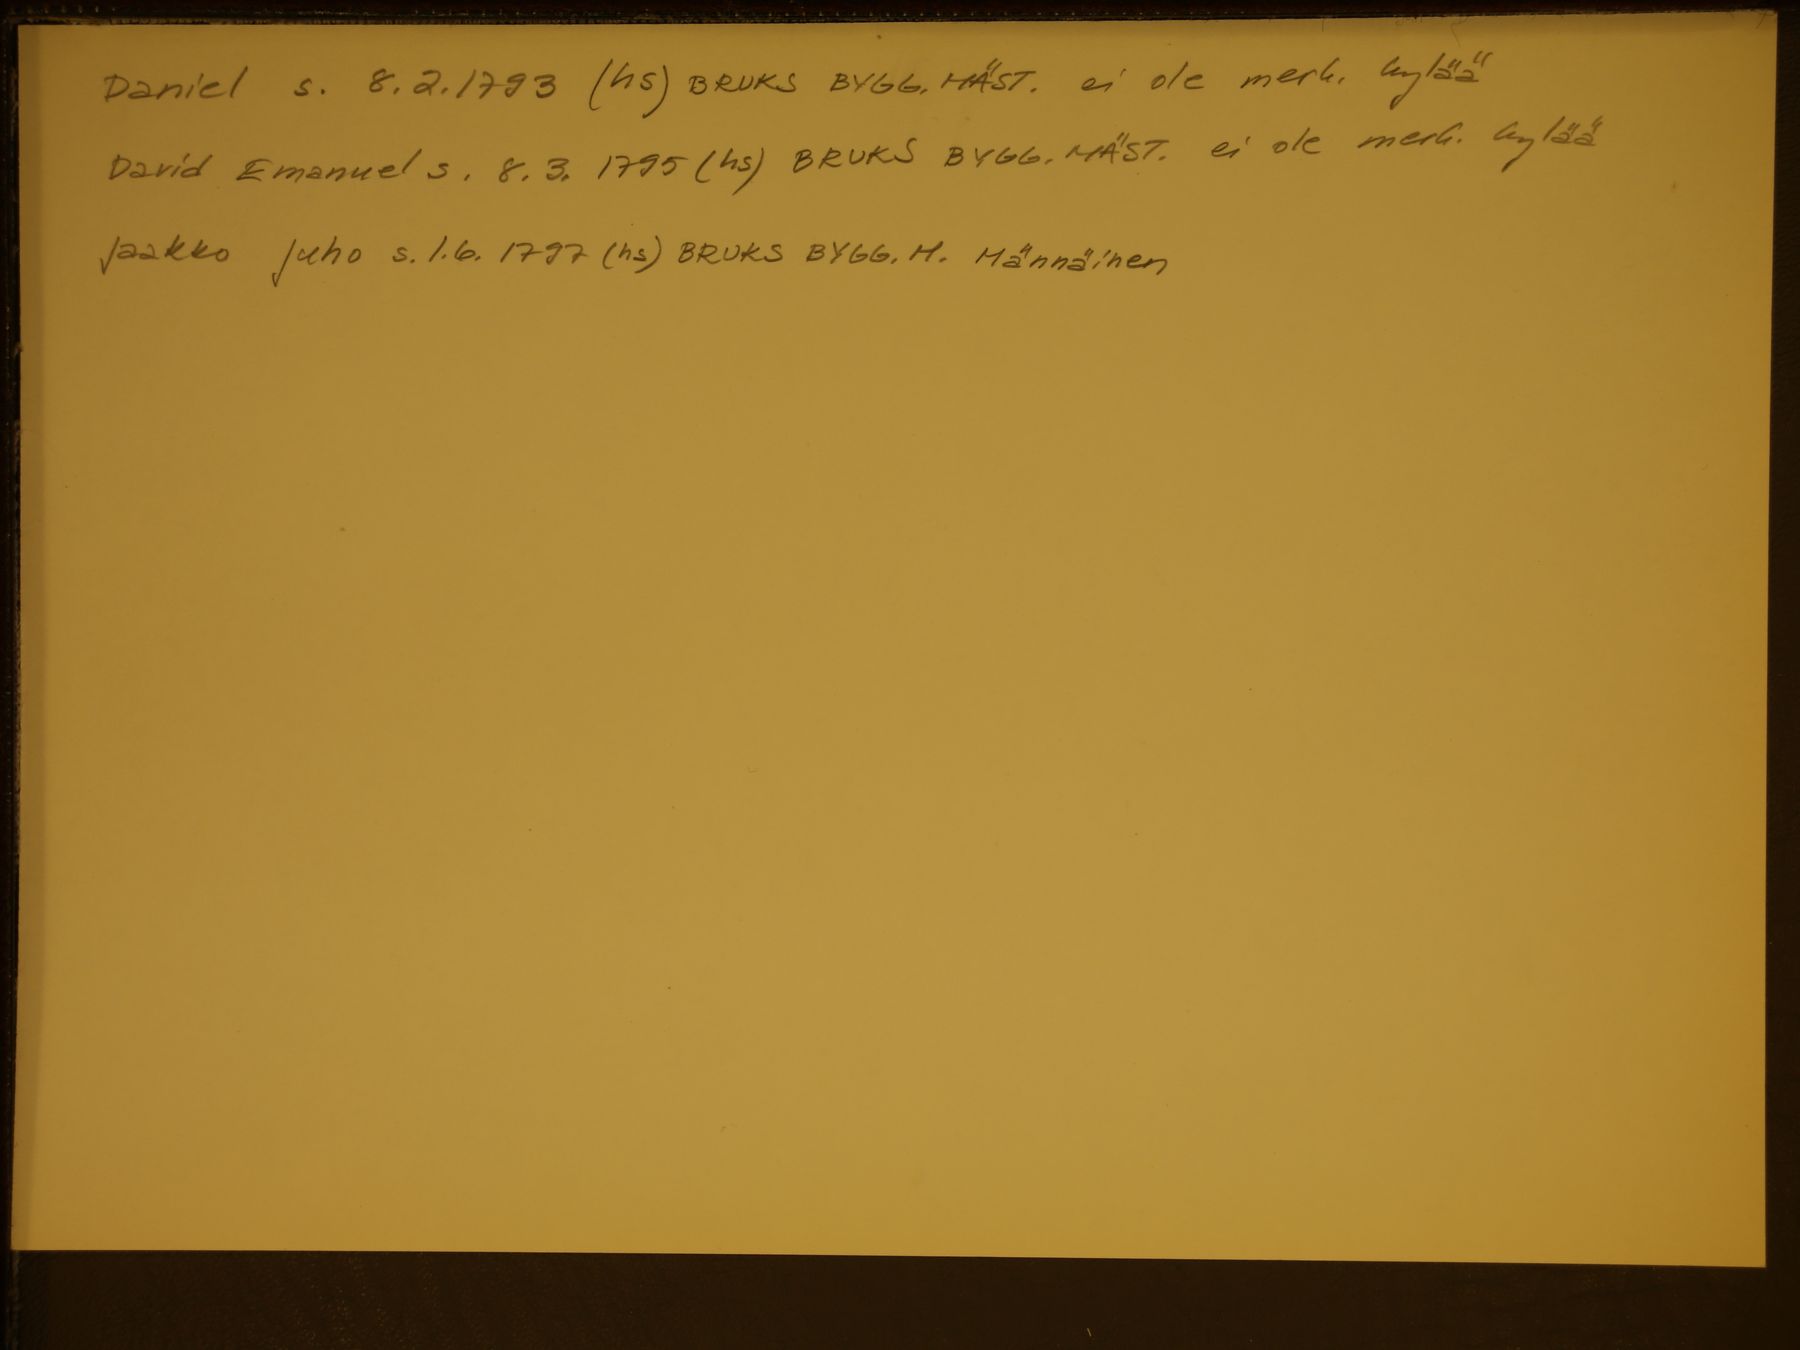 Daniel s. 8.2.1793 (hs) BRUKS BYGG. MÄST. ei ole merk. kylää
David Emanuel s. 8.3. 1795 (hs) BRUKS BYGG. MÄST. ei ole merk. kylää
Jaakko Juho s. 1.6. 1797 (hs) BRUKS BYGG. M. Männäinen